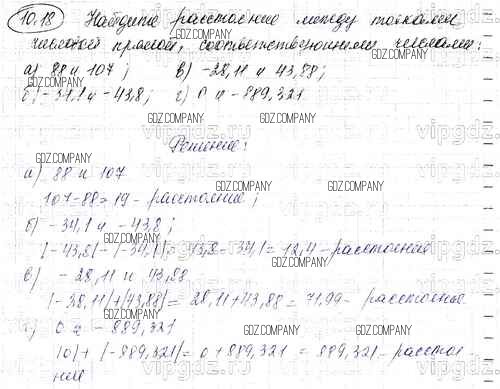 10.18 Найдите расстояние между точками
числовой прямой, соответствующими числами:
а) 88 и 107; в) -28,11 и 43,88;
б) -34,1 и -43,8; г) 0 и -889,321
Решение:
а) 88 и 107
107-88=19 - расстояние;
б) -34,1 и -43,8;
|-43,8|-|-34,1|= 43,8-34,1= 12,4 - расстояние
в) -28,11 и 43,88
|-28,11|+|43,88|= 28,11+43,88 = 71,99 - расстояние
г) 0 и -889,321
|0|+|-889,321|= 0+889,321 = 889,321 - расстоя
ние
GDZ.COMPANY
vipgdz.ru